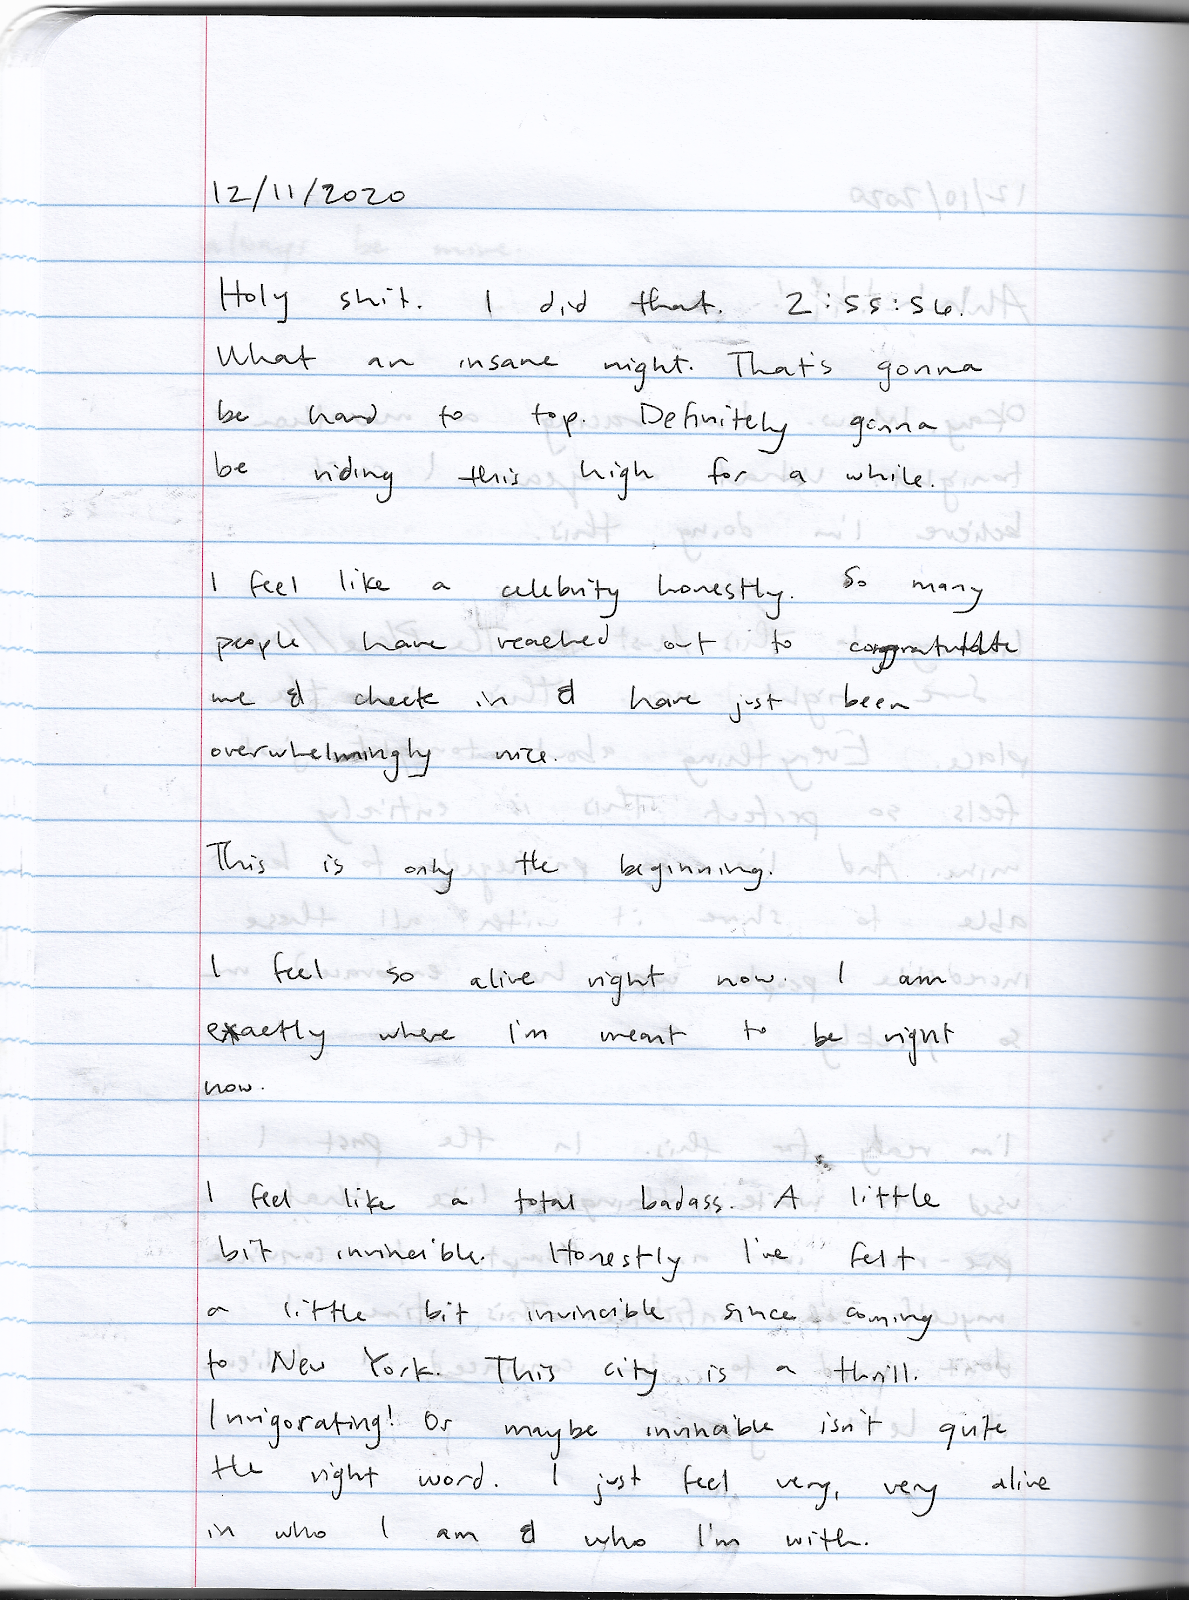 12/11/2020
Holy shit. I did that. 2:55:56.
What an insane night. That's gonna
be hard to top. Definitely gonna
be riding this high for a while.
I feel like a celebrity honestly. So many
people have reached out to congratulate
me & check in & have just been
overwhelmingly nice.
This is only the beginning.
I feel so alive right now. I am
exactly where I'm meant to be right
now.
I feel like a total badass. A little
bit invincible. Honestly I've felt
a little bit invincible since coming
to New York. This city is a thrill.
Invigorating! Or maybe invincible isn't quite
the right word. I just feel very, very alive
in who I am & who I'm with.